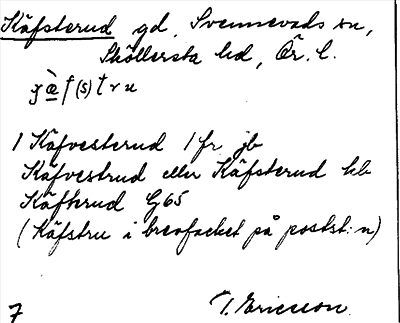 Käfsterud gd, Svennevads sn,
Sköllersta hd, Ör. l.
1 Käfvesterud 1 fr jb
Käfvestrud eller Käfsterud kb
Käfterud G 65
(Käfstru i brevfacket på postst:n)
7 T. Ericsson